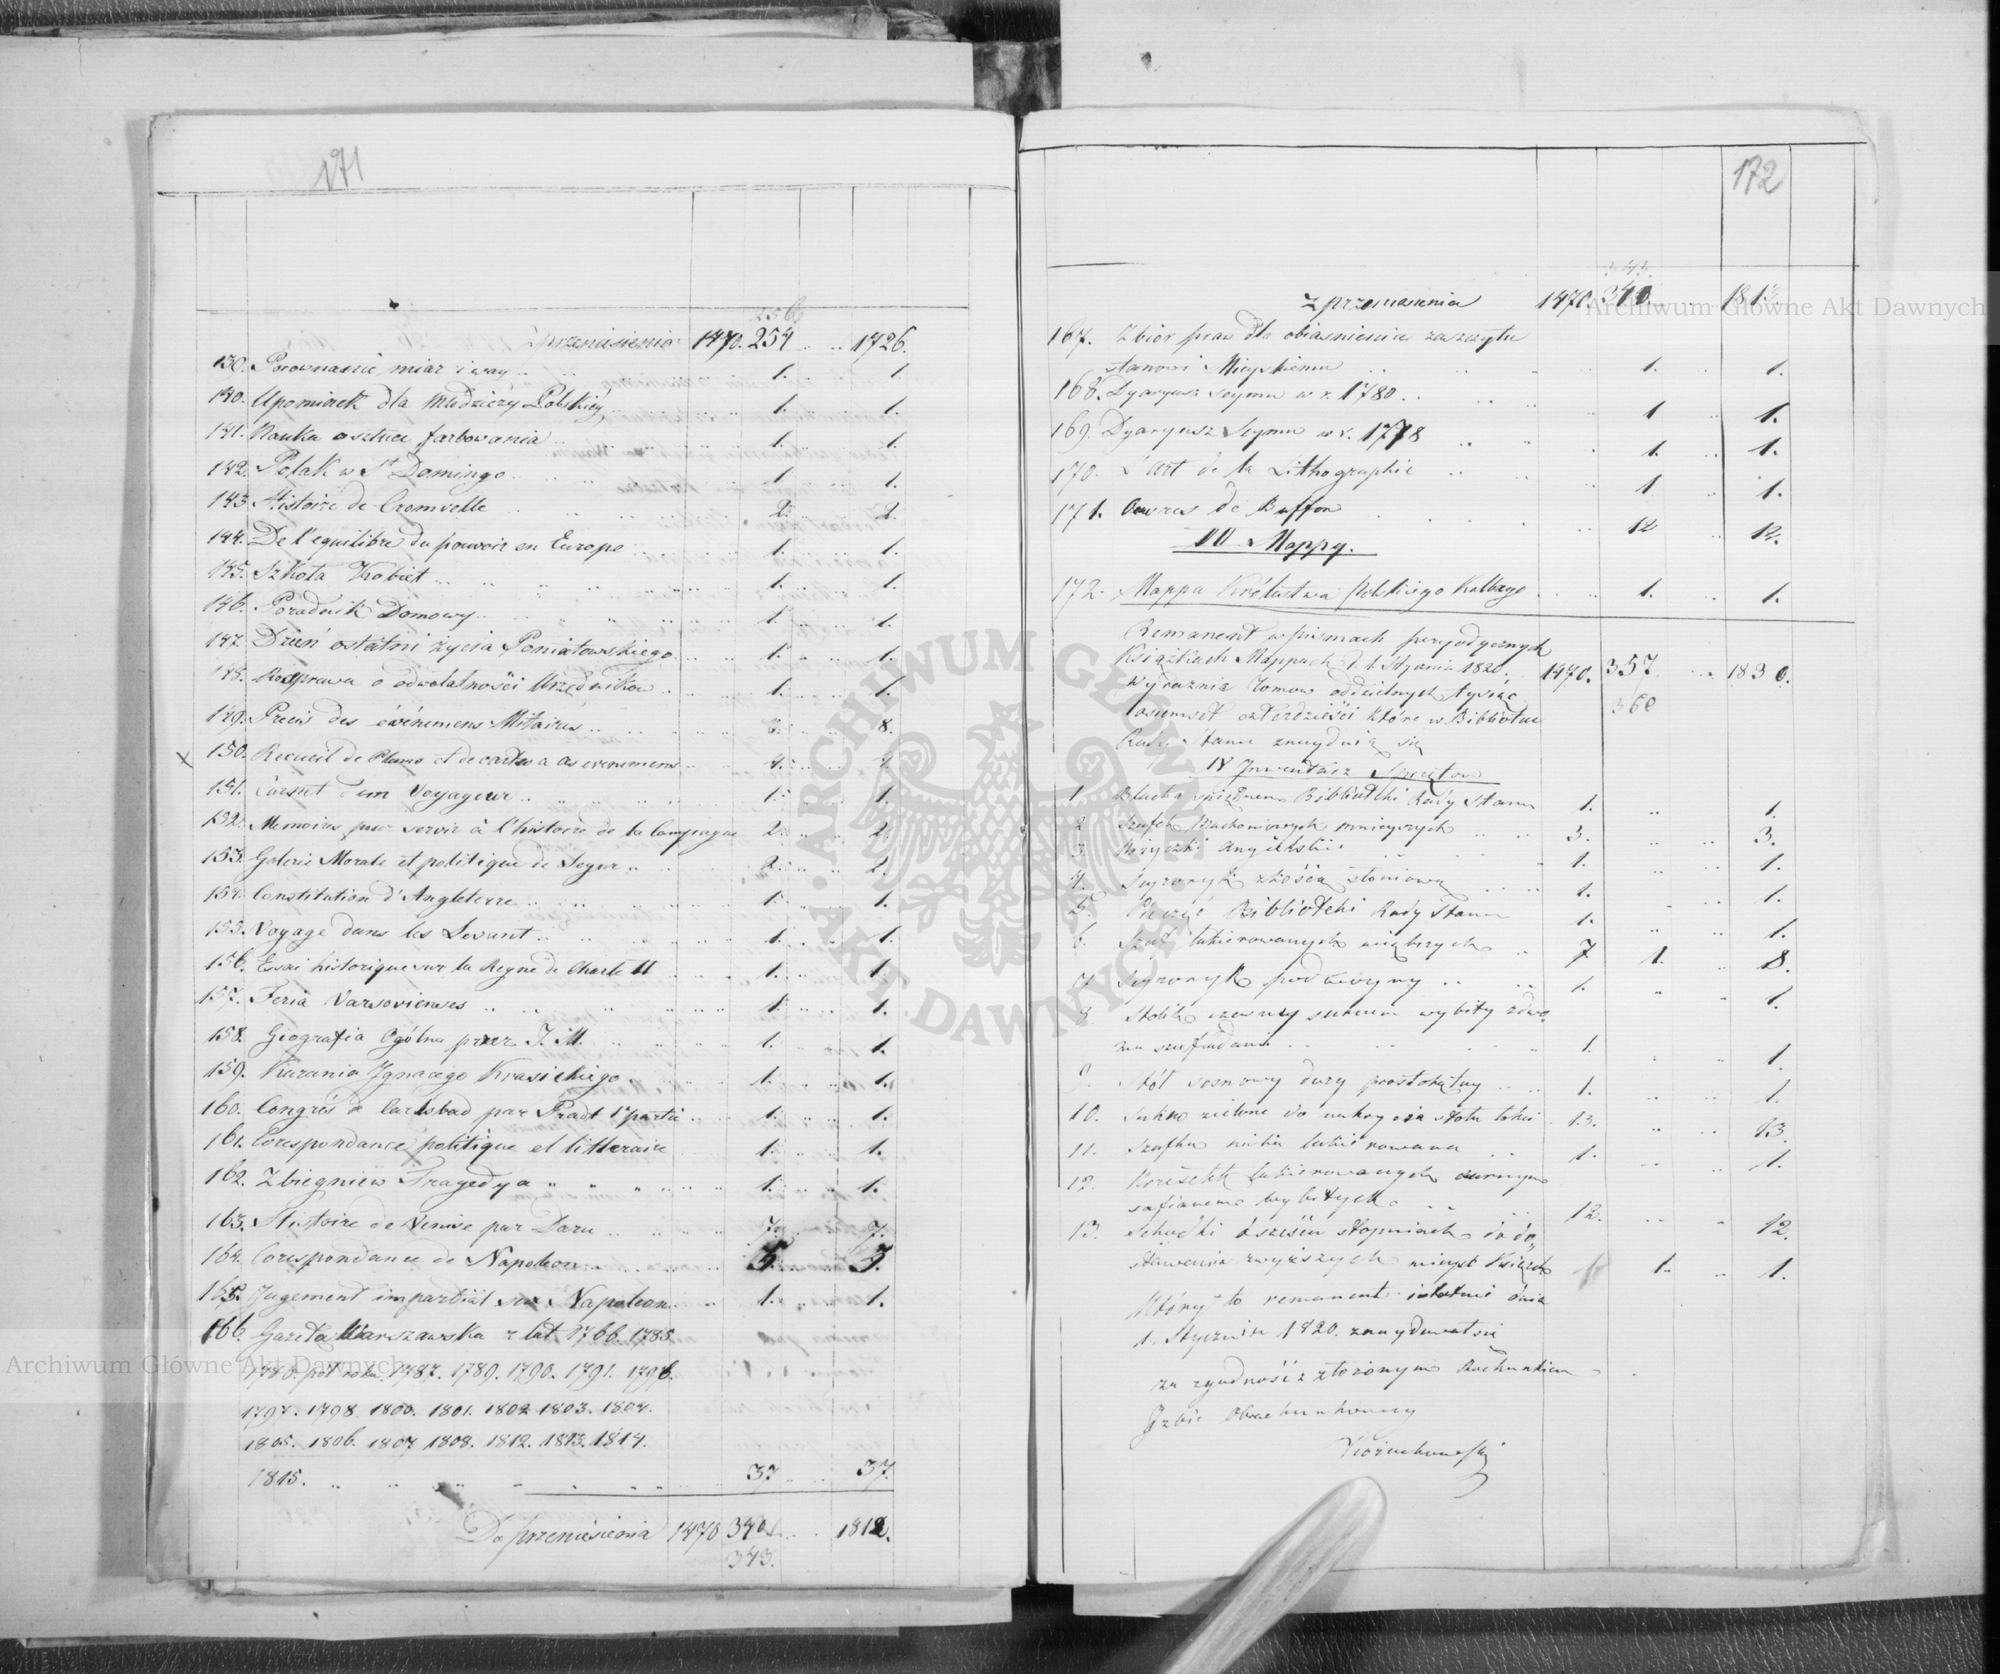 171
256
z przeniesienia 1470. 254 .. .. 1726.
139. Porownanie miar i wag .. 1. 1.
140. Upominek dla Młodzieży Polskiéy 1. 1.
141. Nauka o sztuce farbowania .. 1. 1.
142. Polak w St Domingo .. 1. 1.
143 Histoire de Cromvelle 2. 2.
144. De l'equilibre du pouvoir en Europe 1. 1.
145. Szkoła Kobiet .. 1. 1.
146. Poradnik Domowy .. 1. 1.
147. Dzień ostatni życia Poniatowskiego 1. 1.
148. Rozprawa o odwołalności Urzędników .. 1. 1.
149. Precis des événemens Militaires .. 8.
x 150. Recueil de Plans et de cartes a ces evenemens 4.
151. Carnet d'un Voyageur .. 1. 1.
152. Memoires pour servir à l'histoire de la Campagne 2. 2.
153. Galerie Morale et politique de Segur .. 2. 2.
154. Constitution d'Angleterre .. 1. 1.
155. Voyage dans les Levant .. 1. 1.
156. Essai historique sur la Regne de Charle II 1. 1.
157. Feria Varsovienses .. 1. 1.
158. Geografia Ogólna przez J. M. 1. 1.
159. Kazania Ignacego Krasickiego 1. 1.
160. Congrés de Carlsbad par Pradt 1e partie .. 1. 1.
161. Corespondance politique et litteraire 1. 1.
162. Zbigniew Tragedya .. 1. 1.
163. Histoire de Venise par Daru .. 7. 7.
164. Corespondance de Napoleon ..
165. Jugement impartial sur Napoleon .. 1. 1.
166. Gazeta Warszawska z lat 1766. 1785.
1786. poł roku. 1787. 1789. 1790. 1791. 1796.
1797. 1798. 1800. 1801. 1802 1803. 1804.
1805. 1806. 1807 1808. 1812. 1813. 1814.
1815. .. 37 .. 37.
Do przeniesienia 1470 340 .. .. 1812.
343.
172
343.
z przeniesienia 1470. 340. 1813.
167. Zbiór praw dla obiasnienia zaszczytu
stanowi Mieyskiemu .. 1. 1.
168. Dyaryusz seymu w r. 1780. .. 1 1.
169. Dyaryusz Seymu w r. 1778 .. 1. 1.
170. L'art de la Lithographie .. 1 1.
171. Ouvres de Buffon 12 12.
III Mappy.
172. Mappa Królestwa Polskiego Kolbego 1. 1.
Remanent w pismach peryodycznych
Książkach Mappach d. 1. Stycznia 1820. 1470. 357 .. 1830.
Wyraznie Tomow oddzielnych tysiąc
360
osiemset czterdzieści które w Bibliotece
Rady Stanu znayduią się
IV Inwentarz Sprzętow
1 Blacha Bibliotki Rady Stanu 1. 1.
2 Szafek mnieyszych .. 3. 3.
3. Nożyczki Angielskie 1. 1.
4. Scyzoryk z kością słoniową 1. 1.
5. Pieczęć Bibliotki Rady Stanu 1. 1.
6. Szaf lakierowanych większych .. 7 1. 8.
7 Scyzoryk podwóyny .. 1. 1.
8 Stolik czarny suknem wybity z dwo-
ma szufladami .. 1. 1.
9. Stół sosnowy duży prostokątny .. 1. 1.
10. Sukno zielone do nakrycia stołu łokci 13. 13.
11. Szafka niska lakierowana .. 1. 1.
12. Krzesełek lakierowanych czarnym
safianem wybitych .. 12. 12.
13. Schodki o sześciu stopniach do do-
stawania z wyższych mieysc Książek 1. 1.
Który to remanent istotnie dnia
1. Stycznia 1820. znaydował się
za zgodność z złożonym Rachunkiem
Izbie Obrachunkowey
ARCHIWUM GŁÓWNE
AKT DAWNYCH
Archiwum Główne Akt Dawnych
Archiwum Główne Akt Dawnych